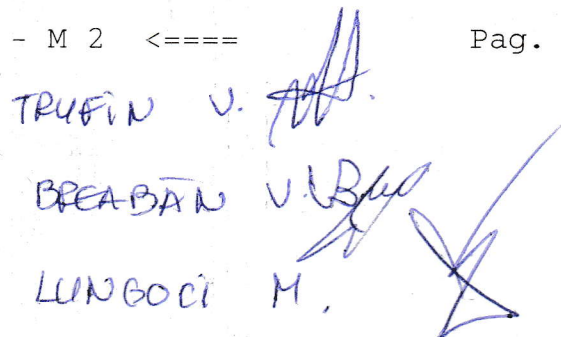 - M 2 <==== Pag.
TRUFiN V.
BREABĂN V.
LUNGOCi M.